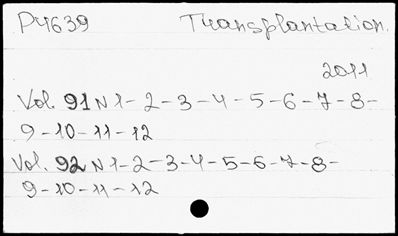 P4639 Transplantation.
2011
Vol. 91 N 1-2-3-4-5-6-7-8-
9-10-11-12
Vol. 92 N 1-2-3-4-5-6-7-8-
9-10-11-12